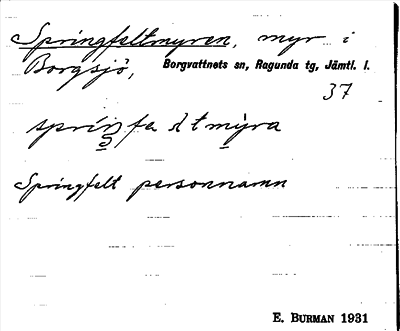 Springfeltmyren, myr i
Borgsjö, Borgvattnets sn, Ragunda tg, Jämtl. l.
37
myra
Springfelt personnamn
E. BURMAN 1931